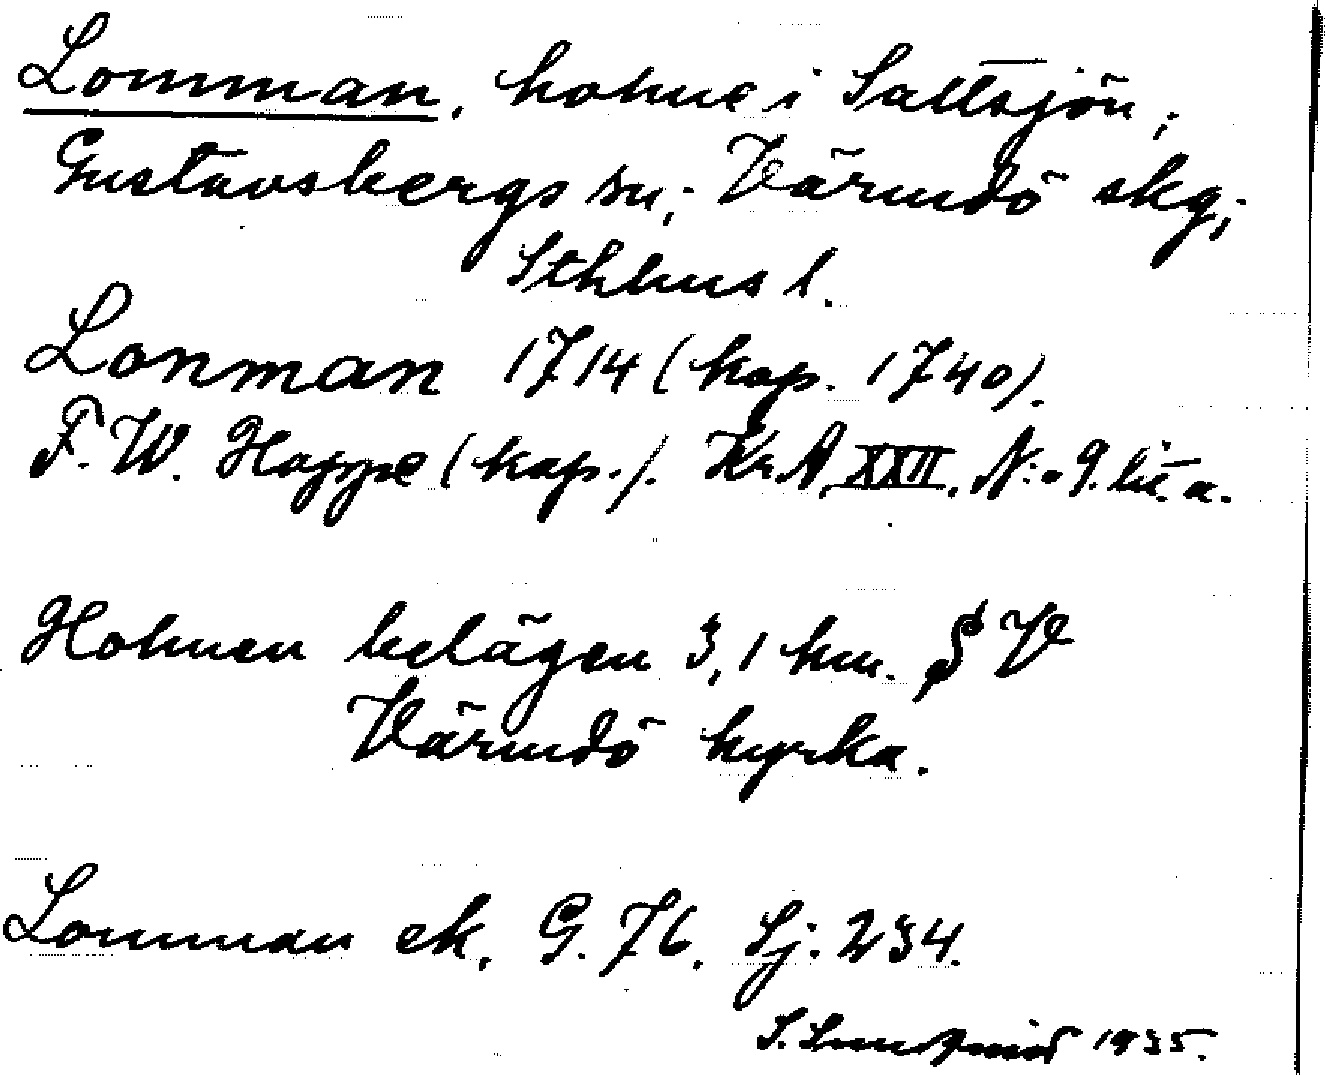 Lomman, holme i Saltsjön,
Gustavsbergs sn; Värmdö skg;
Sthlms l.
Lonman 1714 (kop. 1740).
F. W. Hoppe (kop.). Kr.A. XXII, N:o 9. lit. a.
Holmen belägen 3,1 km. S V
Värmdö kyrka.
Lomman ek. G. 76. Sj: 234.
1935.